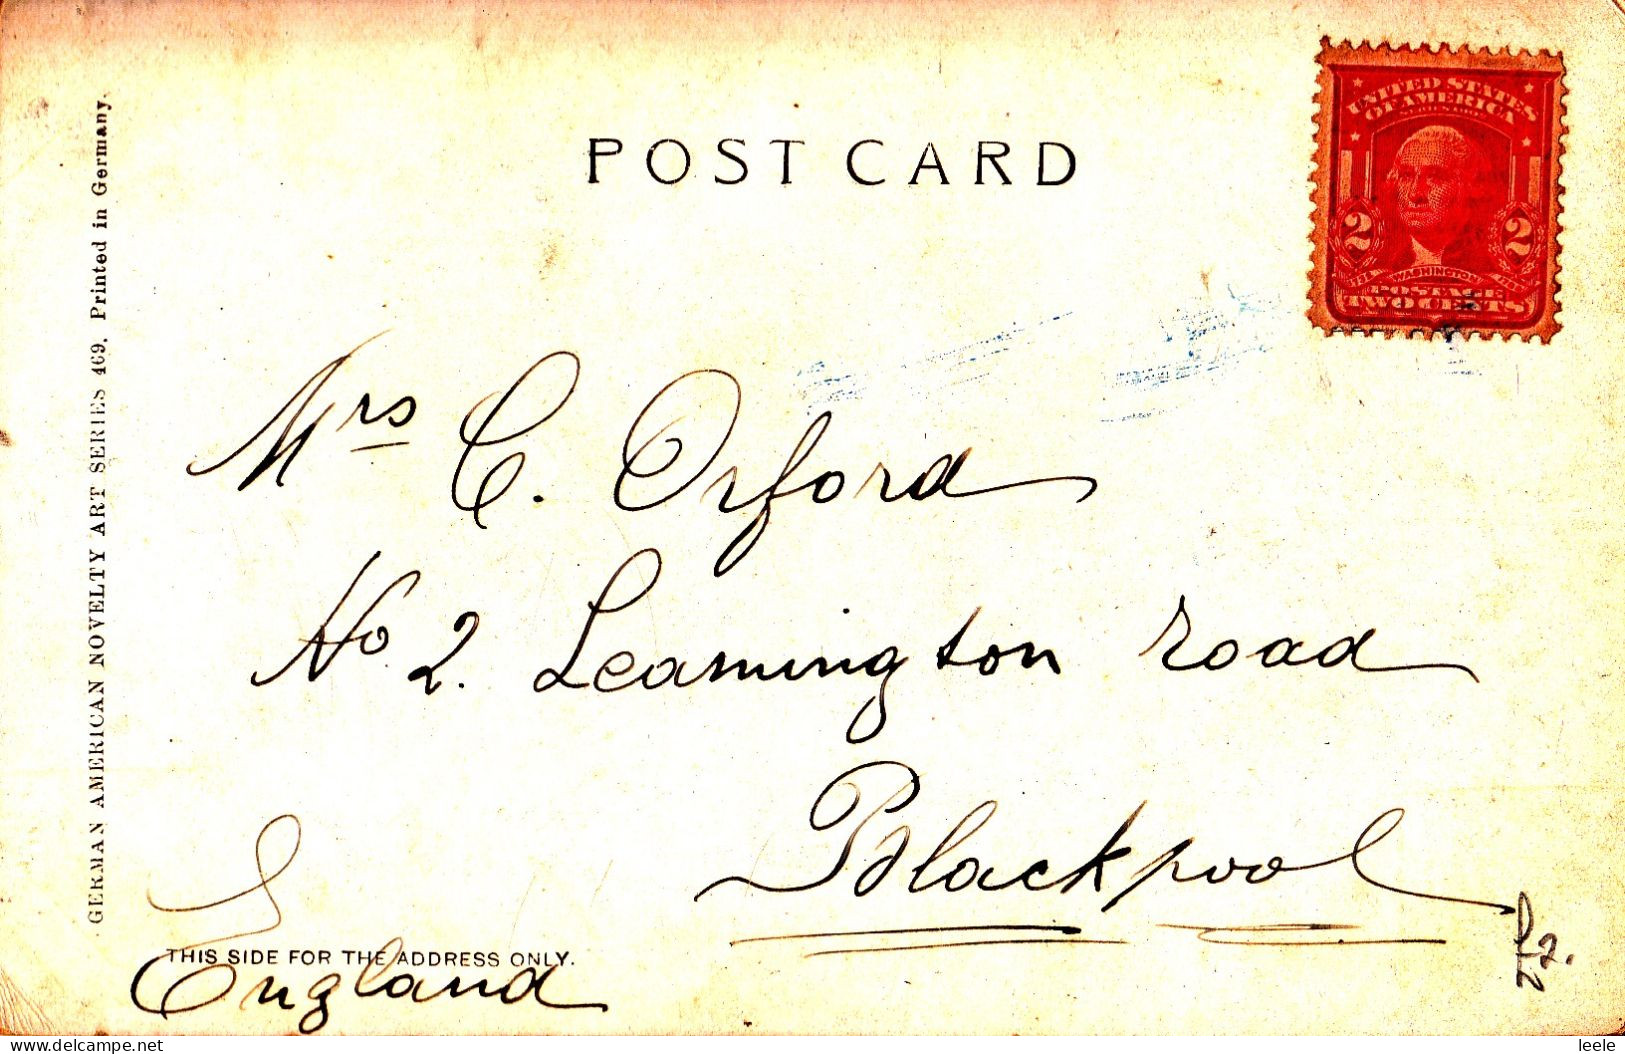 POST CARD
UNITED STATES
OF AMERICA
2 2
WASHINGTON
POSTAGE
TWO CENTS
GERMAN AMERICAN NOVELTY ART SERIES 469. Printed in Germany.
Mrs C. Orford
No 2. Leamington road
Blackpool
£2.
THIS SIDE FOR THE ADDRESS ONLY.
England
www.delcampe.net
leele